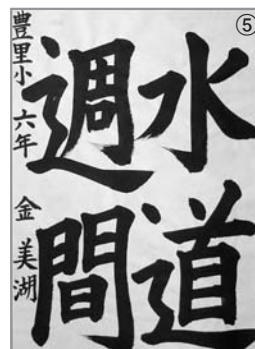 ⑤
水道
週間
豊里小 六年 金 美湖